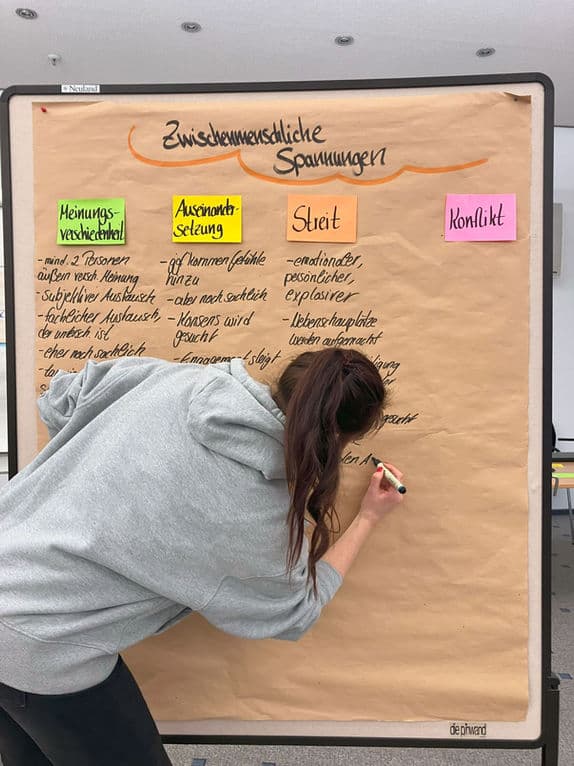 Neuland
Zwischenmenschliche
Spannungen
Meinungs-
verschiedenheit
- mind. 2 Personen
äußern versch. Meinung
- subjektiver Austausch
- fachlicher Austausch,
der untersch. ist
- eher noch sachlich
Auseinander-
setzung
- ggf. kommen Gefühle
hinzu
- aber noch sachlich
- Konsens wird
gesucht
- Engagement steigt
Streit
- emotionaler,
persönlicher,
explosiver
- Nebenschauplätze
werden aufgemacht
Konflikt
die pinwand